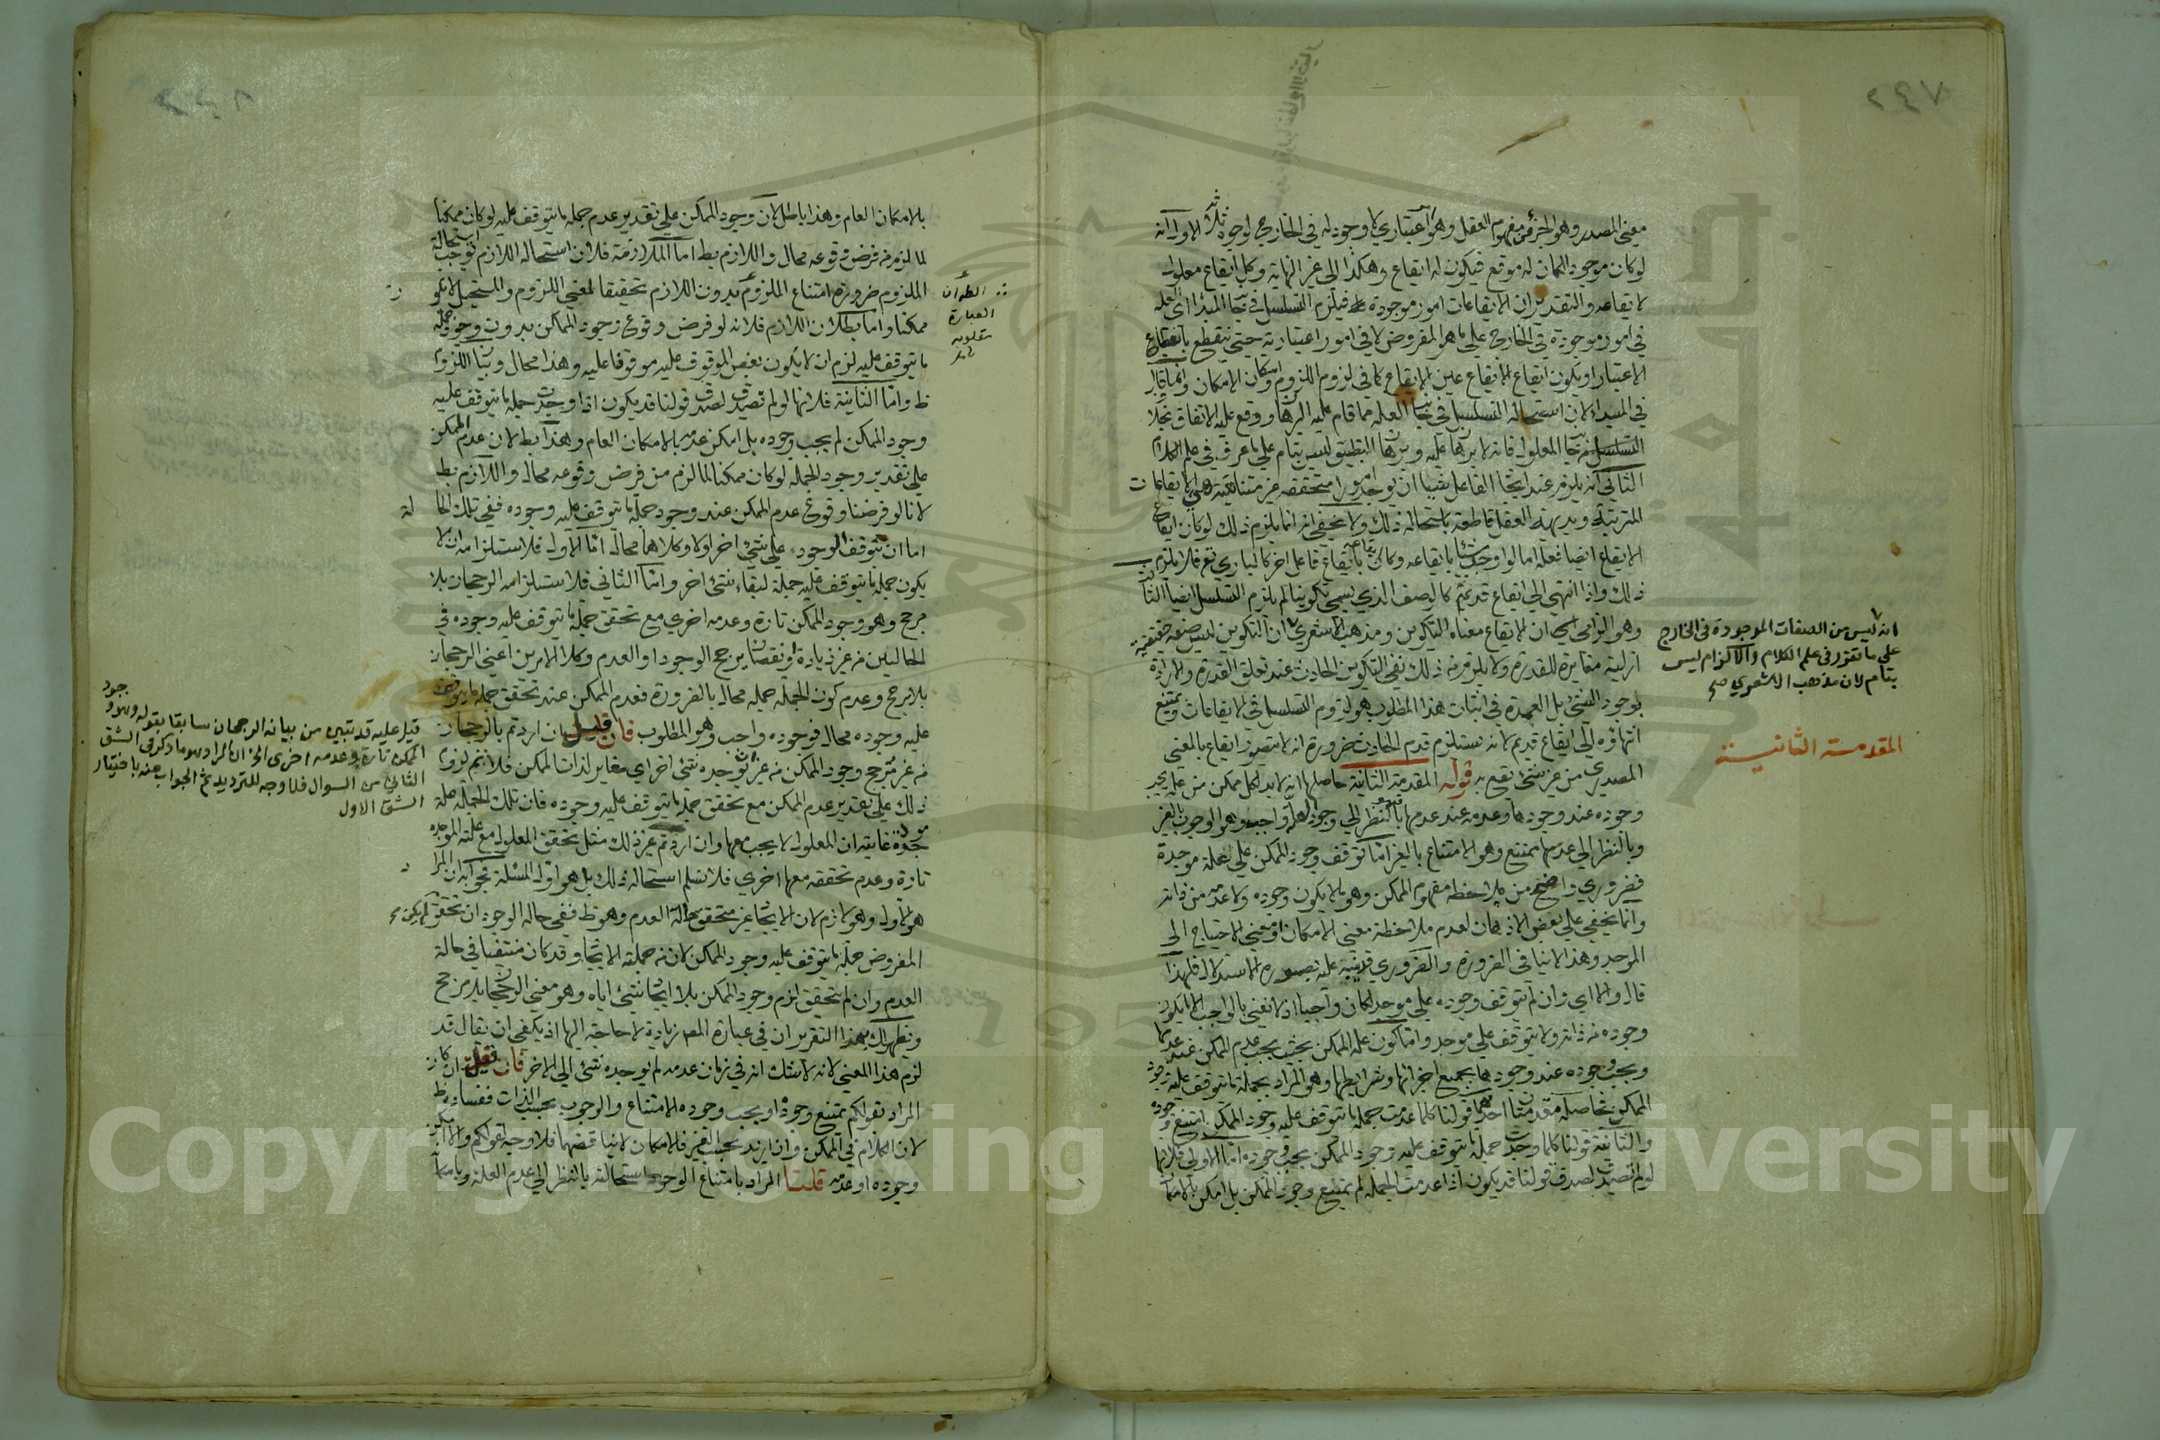 معنى المصدر وهو الجزء من مفهوم العقل وهو اعتباري لا وجود له في الخارج لوجوه ثلاثة الاول انه
لو كان موجودا لكان له موقع فيكون له ايقاع وهكذا الى غير النهاية وكل ايقاع معلول
لايقاعه والتقدير ان الايقاعات امور موجودة فيلزم التسلسل في جانب المبدا اي العله
في امور موجودة في الخارج على ما هو المفروض لا في امور اعتبارية حتى ينقطع بانقطاع
الاعتبار او يكون ايقاع الايقاع عين الايقاع كما في لزوم اللزوم وامكان الامكان وانما قال
في المبدا لان استحالة التسلسل في جانب العله مما قام عليه البرهان ووقع عليه الاتفاق بخلاف
التسلسل في جانب المعلول فانه لا برهان عليه وبرهان التطبيق ليس بتام على ما عرف في علم الكلام
الثاني انه يلزم عند ايجاد الفاعل شيئا ان يوجد امورا متحققة غير متناهية هي الايقاعات
المترتبة وبديهة العقل قاطعة باستحالة ذلك ولا يخفى انه انما يلزم ذلك لو كان ايقاع
الايقاع ايضا فعله اما لو اوجد شيئا بايقاعه وكان ايقاعه بايقاع فاعل اخر كالباري تع فلا يلزم
ذلك واذا انتهى الى ايقاع قديم كالوصف الذي يسمى تكوينا لم يلزم التسلسل ايضا الثالث
وهو الزامي ان الايقاع معناه التكوين ومذهب الاشعري ان التكوين ليس صفة حقيقية
ازلية مغايرة للقدرة ولا يلزم من ذلك نفي التكوين الحادث عند تعلق القدرة والارادة
بوجود الشئ بل العمدة في اثبات هذا المطلوب هو لزوم التسلسل في الايقاعات ويمتنع
انتهاؤه الى ايقاع قديم لانه يستلزم قدم الحادث ضرورة انه لا يتصور ايقاع بالمعنى
المصدري من غير شئ يقع به قوله المقدمة الثانية حاصلها انه لا بد لكل ممكن من علة يجب
وجوده عند وجودها وعدمه عند عدمها فهو بالنظر الى وجود العلة واجب وهو الوجوب بالغير
وبالنظر الى عدمها ممتنع وهو الامتناع بالغير اما توقف وجود الممكن على علة موجدة
فضروري واضح من ملاحظة مفهوم الممكن وهو ما لا يكون وجوده ولا عدمه من ذاته
وانما يخفى على بعض الاذهان لعدم ملاحظة معنى الامكان او معنى الاحتياج الى
الموجد وهذا لا ينافي الضرورة والضروري قد ينبه عليه بصورة الاستدلال فلهذا
قال والا اي وان لم يتوقف وجوده على موجد لكان واجبا اذ لا نعني بالواجب الا ما يكون
وجوده من ذاته ولا يتوقف على موجد واما كون علة الممكن بحيث يجب عدم الممكن عند عدمها
ويجب وجوده عند وجودها بجميع اجزائها وشرايطها وهو المراد بجملة ما يتوقف عليه وجود
الممكن فحاصله مقدمتان احدهما قولنا كلما عدمت جملة ما يتوقف عليه وجود الممكن امتنع وجوده
والثانية قولنا كلما وجدت جملة ما يتوقف عليه وجود الممكن يجب وجوده اما الاولى فلانها
لو لم تصدق لصدق قولنا قد يكون اذا عدمت الجملة لم يمتنع وجود الممكن بل امكن بالامكان
انه ليس من الصفات الموجودة في الخارج
على ما تقرر في علم الكلام والالزام ليس
بتام لان مذهب الاشعري صح
المقدمة الثانية
بالامكان العام وهذا باطل لان وجود الممكن على تقدير عدم جملة ما يتوقف عليه لو كان ممكنا
لما لزم من فرض وقوعه محال واللازم بط اما الملازمة فلان استحالة اللازم توجب استحالة
الملزوم ضرورة امتناع الملزوم بدون اللازم تحقيقا لمعنى اللزوم والمستحيل لا يكون
ممكنا واما بطلان اللازم فلانه لو فرض وقوع وجود الممكن بدون وجود جملة
ما يتوقف عليه لزم ان لا يكون بعض الموقوف عليه موقوفا عليه وهذا محال وبيان اللزوم
ظ واما الثانية فلانها لو لم تصدق لصدق قولنا قد يكون اذا وجدت جملة ما يتوقف عليه
وجود الممكن لم يجب وجوده بل امكن عدمه بالامكان العام وهذا بط لان عدم الممكن
على تقدير وجود الجملة لو كان ممكنا لما لزم من فرض وقوعه محال واللازم بط
لانا لو فرضنا وقوع عدم الممكن عند وجود جملة ما يتوقف عليه وجوده ففي تلك الحالة
اما ان يتوقف الوجود على شئ اخر اولا وكلاهما محال اما الاول فلاستلزامه ان لا
يكون جملة ما يتوقف عليه جملة لبقاء شئ اخر واما الثاني فلاستلزامه الرجحان بلا
مرجح وهو وجود الممكن تارة وعدمه اخرى مع تحقق جملة ما يتوقف عليه وجوده في
الحالين من غير زيادة او نقصان يرجح الوجود او العدم وكلا الامرين اعني الرجحان
بلا مرجح وعدم كون الجملة جملة محال بالضرورة فعدم الممكن عند تحقق جملة ما يتوقف
عليه وجوده محال فوجوده واجب وهو المطلوب فان قيل ان اردتم بالرجحان
من غير مرجح وجود الممكن من غير ان يوجده شئ اخر اي مغاير لذات الممكن فلا نم لزوم
ذلك على تقدير عدم الممكن مع تحقق جملة ما يتوقف عليه وجوده فان تلك الجملة علة
موجدة غايته ان المعلول لا يجب معها وان اردتم غير ذلك مثل تحقق المعلول مع علته الموجدة
تارة وعدم تحققه معها اخرى فلا نسلم استحالة ذلك بل هو اول المسئلة فجوابه ان المراد
هو الاول وهو لازم لان الايجاد غير متحقق حالة العدم وهو ظ ففي حالة الوجود ان تحقق لم يكن
المفروض جملة ما يتوقف عليه وجود الممكن لان من جملته الايجاد وقد كان منتفيا في حالة
العدم وان لم يتحقق لزم وجود الممكن بلا ايجاد شئ اياه وهو معنى الرجحان بلا مرجح
ويظهر لك بهذا التقرير ان في عبارة المص زيادة لا حاجة اليها اذ يكفي ان يقال قد
لزم هذا المعنى لانه لا شك انه في زمان عدمه لم يوجده شئ الى الاخر فان قيل ان كان
المراد بقولكم يمتنع وجوده او يجب وجوده الامتناع والوجوب بحسب الذات ففساده ظ
لان الكلام في الممكن وان اريد بحسب الغير فالامكان لا يناقضهما فلا وجه لقولكم والا امكن
وجوده او عدمه قلنا المراد بامتناع الوجود استحالته بالنظر الى عدم العلة وبامكان
الظ ان
العبارة
مقلوبة
قيل عليه قد تبين من بيانه الرجحان سابقا بقوله وهو وجود
الممكن تارة وعدمه اخرى الخ ان المراد هو ما ذكر في الشق
الثاني من السوال فلا وجه للترديد ثم الجواب عنه باختيار
الشق الاول
Copyright © King Saud University
1957